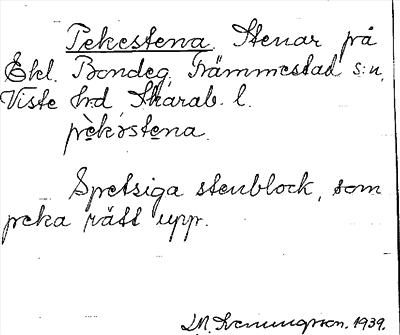 Pekestena. Stenar på
Ekl. Bondeg. Främmestad s:n,
Viste hd Skarab. l.
pèkəstena.
Spetsiga stenblock, som
peka rätt upp.
1939.